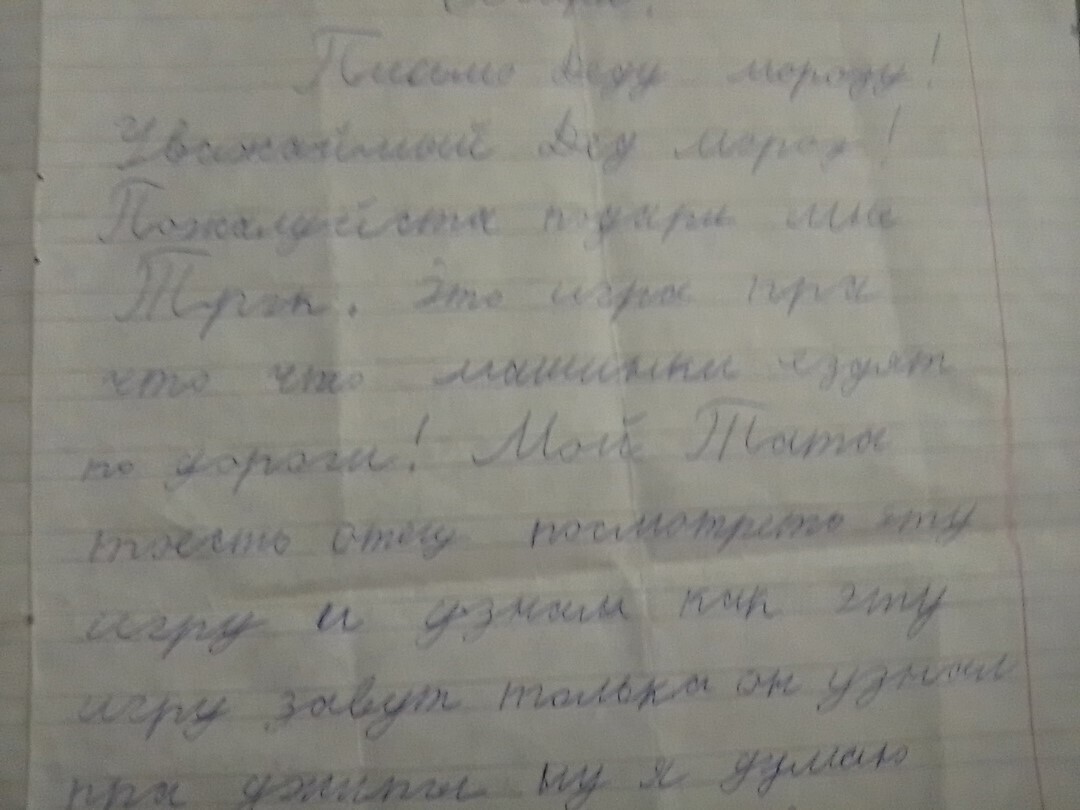 Письмо Деду морозу!
Уважаймый Дед мороз!
Пожалуйста подари мне
Трэк. Это игра пра
что что машинки ездят
по дороги! Мой Тата
тоесть отец посмотрето эту
игру и узнал как эту
игру завут толька он узнал
пра джипы ну я думаю